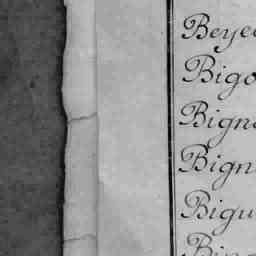 Beye
Bigo
Bign
Bign
Bigu